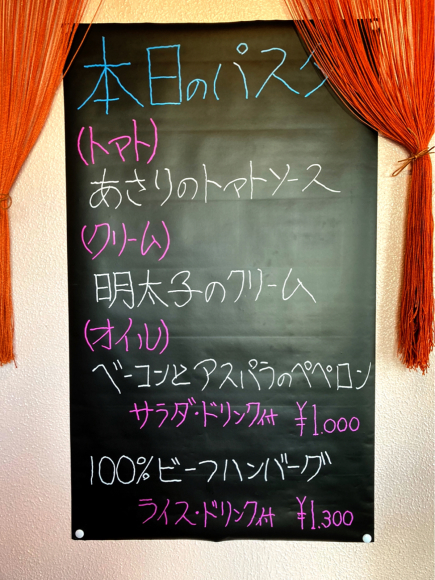 本日のパスタ
(トマト)
あさりのトマトソース
(クリーム)
明太子のクリーム
(オイル)
ベーコンとアスパラのペペロン
サラダ・ドリンク付 ¥1.000
100%ビーフハンバーグ
ライス・ドリンク付 ¥1.300